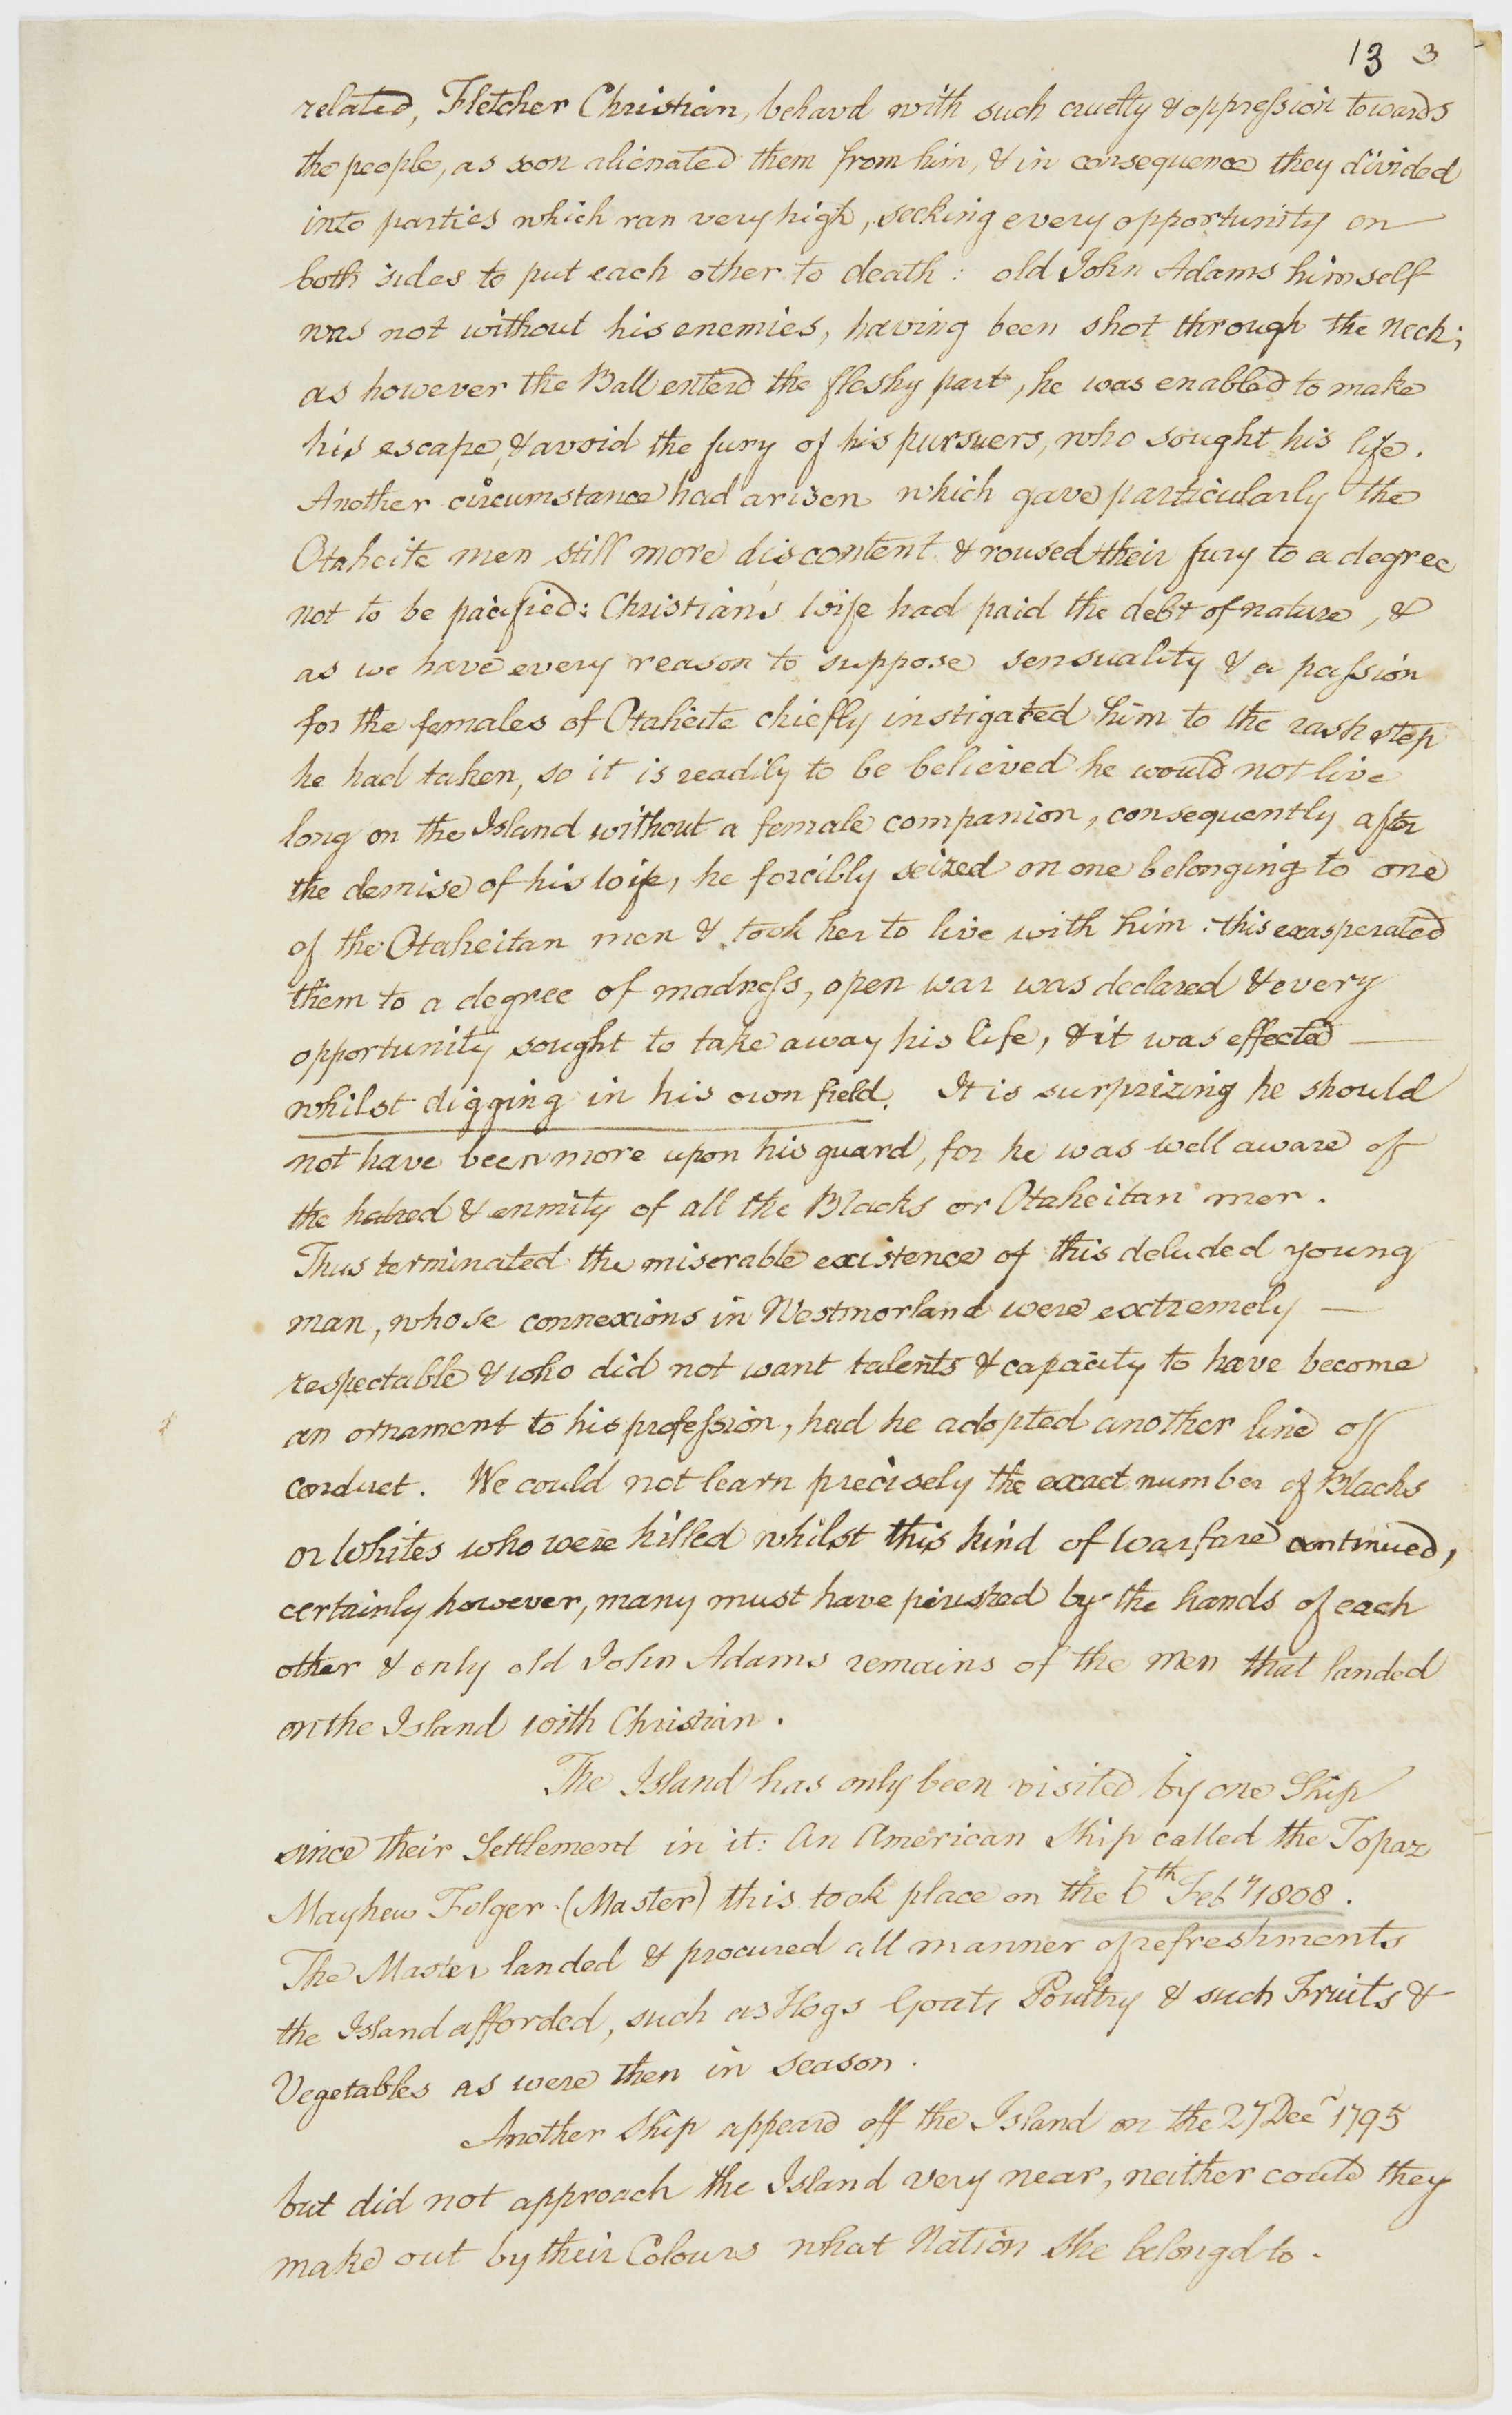 13 3
related, Fletcher Christian, behavd with such cruelty & oppression towards
the people, as soon alienated them from him, & in consequence they divided
into parties which ran very high, seeking every opportunity on
both sides to put each other to death: old John Adams himself
was not without his enemies, having been shot through the neck;
as however the Ball enterd the fleshy part, he was enabled to make
his escape, & avoid the fury of his pursuers, who sought his life.
Another circumstance had arisen which gave particularly the
Otaheite men still more discontent & roused their fury to a degree
not to be pacified: Christian's wife had paid the debt of nature, &
as we have every reason to suppose sensuality & a passion
for the females of Otaheite chiefly instigated him to the rash step
he had taken, so it is readily to be believed he would not live
long on the Island without a female companion, consequently after
the demise of his wife, he forcibly seized on one belonging to one
of the Otaheitan men & took her to live with him: this exasperated
them to a degree of madness, open war was declared & every
opportunity sought to take away his life, & it was effected —
whilst digging in his own field. It is surprizing he should
not have been more upon his guard, for he was well aware of
the hatred & enmity of all the Blacks or Otaheitan men.
Thus terminated the miserable existence of this deluded young
man, whose connexions in Westmorland were extremely —
respectable & who did not want talents & capacity to have become
an ornament to his profession, had he adopted another line of
conduct. We could not learn precisely the exact number of Blacks
or Whites who were killed whilst this kind of warfare continued,
certainly however, many must have perished by the hands of each
other & only old John Adams remains of the men that landed
on the Island with Christian.
The Island has only been visited by one Ship
since their Settlement in it: An American Ship called the Topaz
Mayhew Folger (Master) this took place on the 6th Feby 1808.
The Master landed & procured all manner of refreshments
the Island afforded, such as Hogs Goats Poultry & such Fruits &
Vegetables as were then in season.
Another Ship appeard off the Island on the 27 Decr 1795
but did not approach the Island very near, neither could they
make out by their Colours what Nation she belongd to.